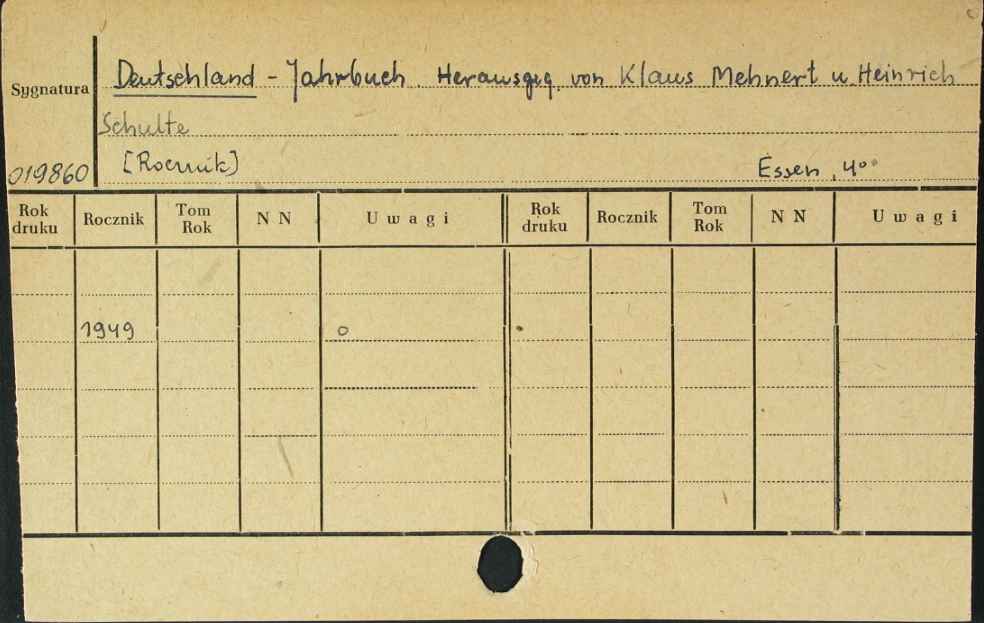 Deutschland - Jahrbuch. Herausgeg. von Klaus Mehnert u. Heinrich
Sygnatura
Schulte
019860 [Rocznik] Essen, 4°
Rok druku Rocznik Tom Rok NN Uwagi Rok druku Rocznik Tom Rok NN Uwagi
1949 o